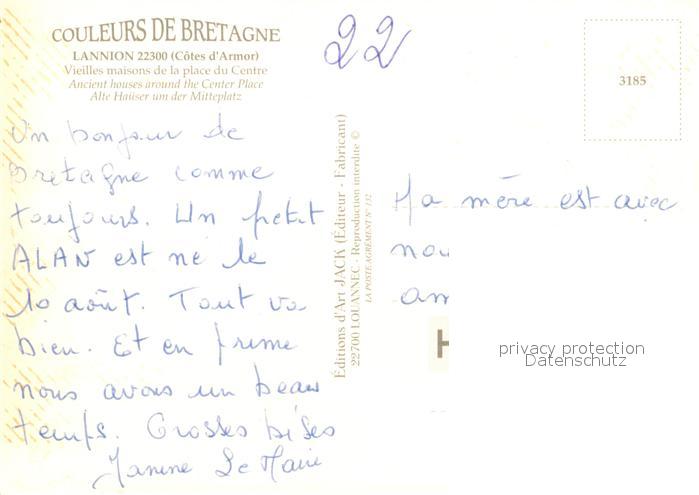 COULEURS DE BRETAGNE
LANNION 22300 (Côtes d'Armor)
Vieilles maisons de la place du Centre
Ancient houses around the Center Place
Alte Haüser um der Mitteplatz
22
3185
Un bonjour de
Bretagne comme
toujours. Un petit
ALAN est né le
10 août. Tout va
bien. Et en prime
nous avons un beau
temps. Grosses bises
Janine Le Maire
Éditions d'Art JACK (Éditeur - Fabricant)
22700 LOUANNEC - Reproduction interdite ©
LA POSTE AGRÉMENT N° 132
Ma mère est avec
nou
am
H
privacy protection
Datenschutz